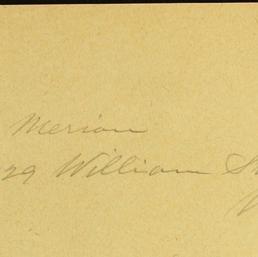 Merion
29 William St